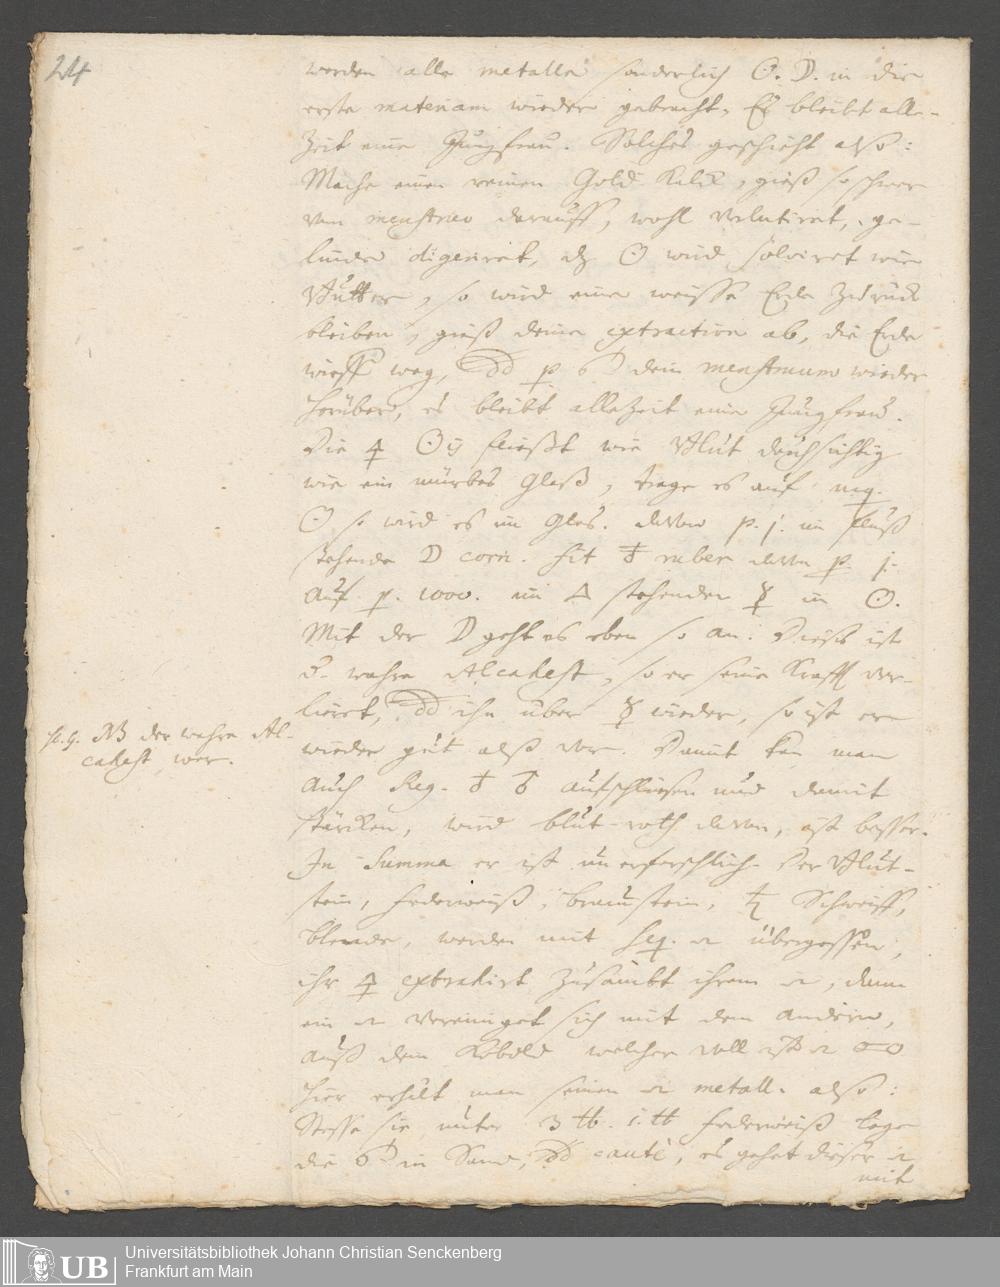 24
werden alle metalla sonderlich ☉. ☽. in die
erste materiam wieder gebracht, Es bleibt alle-
zeit eine Jungfrau. Solches geschieht also:
Mache einen reinen Gold Kalck, gieß so schwer
von menstruo darauff, wohl verlutiret, ge-
linde digeriret, dz ☉ wird solviret wie
Butter, so wird eine weisse Erde zurück
bleiben, gieß deine extraction ab, die Erde
wirff weg, dein menstruum wieder
herüber, es bleibt allezeit eine Jungfrau.
Die 🜍 ☉ij fließt wie Blut durchsichtig
wie ein mürbes Glaß, trage es auf
☉ so wird es im Glas. davon p. j. im Fluß
stehende ☽ corn. fit ruber davon p. j.
auf p. 1000. im 🜂 stehenden ☿ in ☉.
Mit der ☽ geht es eben so an. Dieses ist
d. wahre Alcahest, so er seine Krafft ver-
lieret, ihn über ☿ wieder, so ist er
sc. g. NB der wahre Al-
cahest, wer.
wieder gut alß vor. Damit kan man
auch Reg. ♁ ♂ aufschliesen und damit
stärcken, wird blut-roth davon, ist besser.
In Summa er ist unerforschlich. Der Blut-
stein, Federweiß, Braunstein, ♃ Schweiff,
blende, werden mit übergossen,
ihr 🜍 extrahirt zusambt ihrem , dann
ein vereiniget sich mit dem andern,
auß dem Kobold welcher voll ist
hier erhält man seinen metall. also:
Stosse sie unter 3 ℔. 1. ℔ Federweiß lege
die in Sand, caute, es gehet dieser
mit
Universitätsbibliothek Johann Christian Senckenberg
Frankfurt am Main
UB